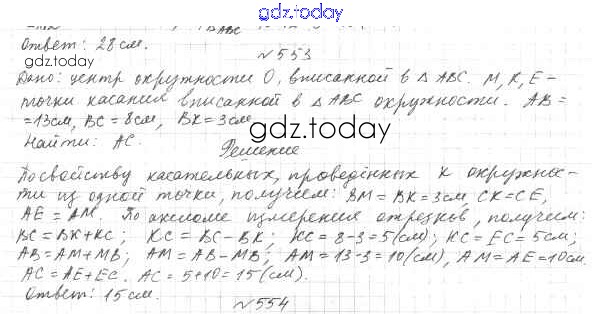 gdz.today
Ответ: 28 см.
gdz.today
№553
Дано: центр окружности O, вписанной в △ ABC. M, K, E –
точки касания вписанной в △ ABC окружности. AB =
= 13см, BC = 8см, BK = 3см
gdz.today
Найти: AC.
Решение
По свойству касательных, проведённых к окружнос-
ти из одной точки, получим: BM = BK = 3см, CK = CE,
AE = AM. По аксиоме измерения отрезков, получим:
BC = BK + KC; KC = BC - BK; KC = 8 - 3 = 5 (см); KC = EC = 5см;
AB = AM + MB; AM = AB - MB; AM = 13 - 3 = 10 (см), AM = AE = 10см.
AC = AE + EC. AC = 5 + 10 = 15 (см).
Ответ: 15 см.
№554
gdz.today